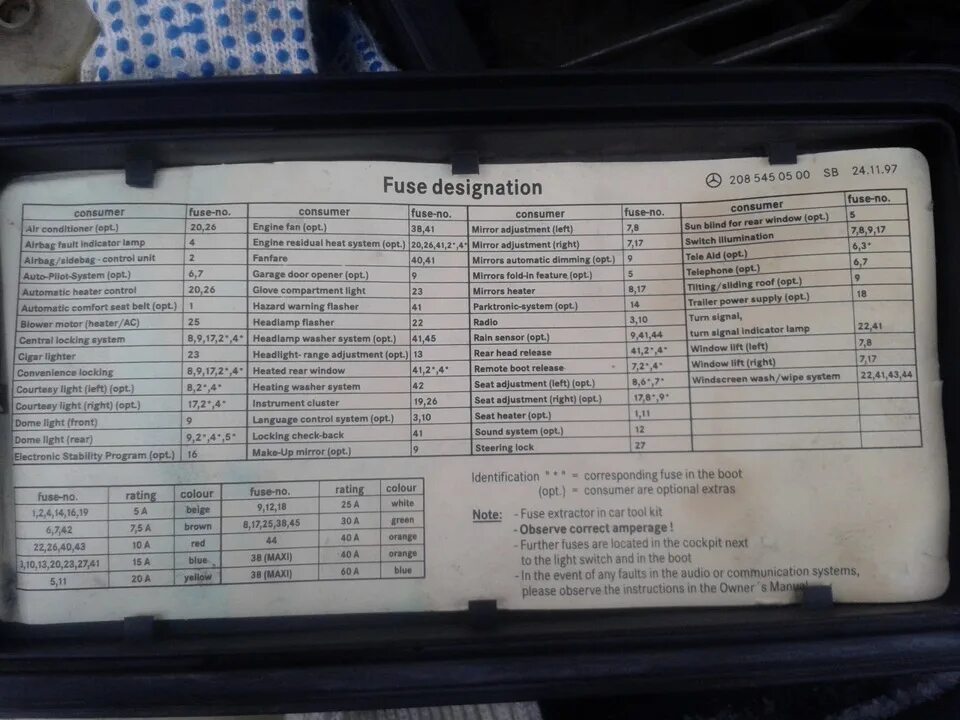 Fuse designation
208 545 05 00 SB 24.11.97
consumer fuse-no.
Air conditioner (opt.) 20,26
Airbag fault indicator lamp 4
Airbag/sidebag - control unit 2
Auto-Pilot-System (opt.) 6,7
Automatic heater control 20,26
Automatic comfort seat belt (opt.) 1
Blower motor (heater/AC) 25
Central locking system 8,9,17,2*,4*
Cigar lighter 23
Convenience locking 8,9,17,2*,4*
Courtesy light (left) (opt.) 8,2*,4*
Courtesy light (right) (opt.) 17,2*,4*
Dome light (front) 9
Dome light (rear) 9,2*,4*,5*
Electronic Stability Program (opt.) 16
consumer fuse-no.
Engine fan (opt.) 38,41
Engine residual heat system (opt.) 20,26,41,2*,4*
Fanfare 40,41
Garage door opener (opt.) 9
Glove compartment light 23
Hazard warning flasher 41
Headlamp flasher 22
Headlamp washer system (opt.) 41,45
Headlight- range adjustment (opt.) 13
Heated rear window 41,2*,4*
Heating washer system 42
Instrument cluster 19,26
Language control system (opt.) 3,10
Locking check-back 41
Make-Up mirror (opt.) 9
consumer fuse-no.
Mirror adjustment (left) 7,8
Mirror adjustment (right) 7,17
Mirrors automatic dimming (opt.) 9
Mirrors fold-in feature (opt.) 5
Mirrors heater 8,17
Parktronic-system (opt.) 14
Radio 3,10
Rain sensor (opt.) 9,41,44
Rear head release 41,2*,4*
Remote boot release 7,2*,4*
Seat adjustment (left) (opt.) 8,6*,7*
Seat adjustment (right) (opt.) 17,8*,9*
Seat heater (opt.) 1,11
Sound system (opt.) 12
Steering lock 27
consumer fuse-no.
Sun blind for rear window (opt.) 5
Switch illumination 7,8,9,17
Tele Aid (opt.) 6,3*
Telephone (opt.) 6,7
Tilting/sliding roof (opt.) 9
Trailer power supply (opt.) 18
Turn signal,
turn signal indicator lamp 22,41
Window lift (left) 7,8
Window lift (right) 7,17
Windscreen wash/wipe system 22,41,43,44
fuse-no. rating colour
1,2,4,14,16,19 5 A beige
6,7,42 7,5 A brown
22,26,40,43 10 A red
,10,13,20,23,27,41 15 A blue
5,11 20 A yellow
fuse-no. rating colour
9,12,18 25 A white
8,17,25,38,45 30 A green
44 40 A orange
38 (MAXI) 40 A orange
38 (MAXI) 60 A blue
Identification "*" = corresponding fuse in the boot
(opt.) = consumer are optional extras
Note: - Fuse extractor in car tool kit
- Observe correct amperage !
- Further fuses are located in the cockpit next
to the light switch and in the boot
- In the event of any faults in the audio or communication systems,
please observe the instructions in the Owner´s Manual